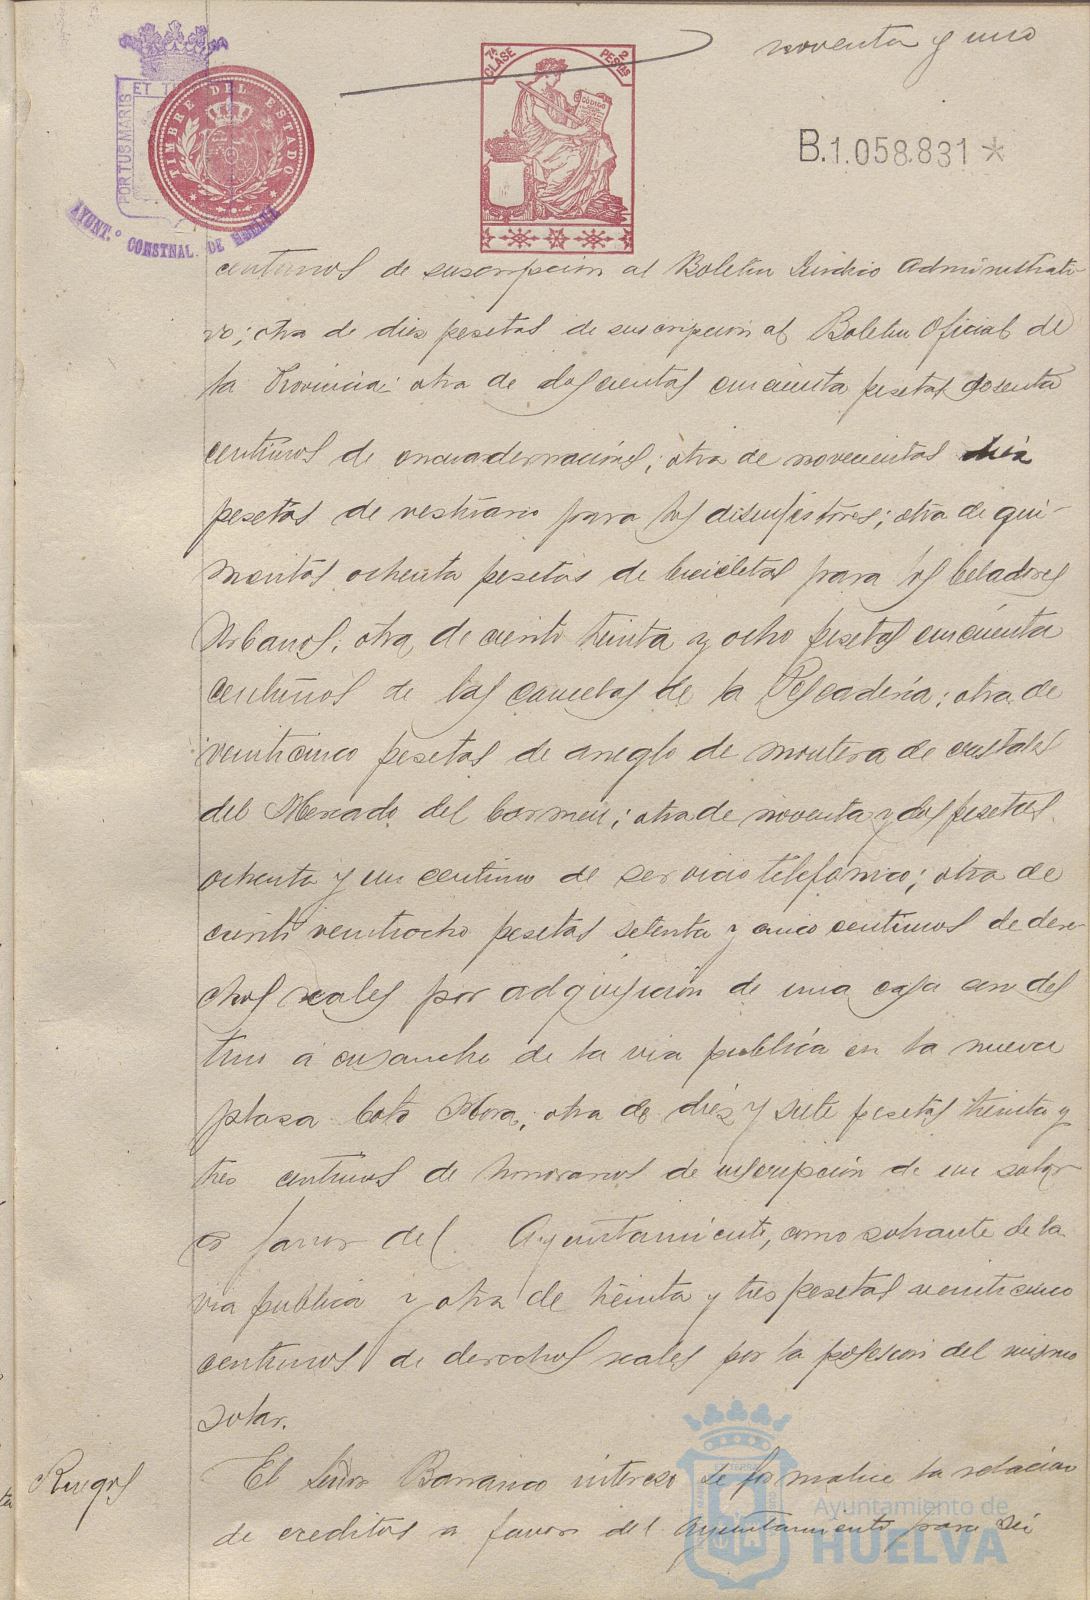 noventa y uno
7ª CLASE 2 PESTAS
CÓDIGO
TIMBRE DEL ESTADO
PORTUS MARIS ET
AYUNT.º CONSTNAL. DE
B.1.058.831*
centimos de suscripcion al Boletin Juridico Administrati-
vo; otra de diez pesetas de suscripcion al Boletin Oficial de
la Provincia; otra de doscientas cincuenta pesetas
centimos de encuadernaciones; otra de novecientas
pesetas de vestuario para los disinfectores; otra de qui-
nientas ochenta pesetas de bicicletas para los Celadores
Urbanos; otra de ciento treinta y ocho pesetas cincuenta
centimos de las de la Pescaderia; otra de
veinticinco pesetas de arreglo de montera de cristales
del Mercado del Carmen; otra de noventa y dos pesetas
ochenta y un centimo de servicio telefonico; otra de
ciento veintiocho pesetas setenta y cinco centimos de dere-
chos reales por adquisicion de una casa con des
tino á ensanche de la via pública en la nueva
plaza Coto Mora; otra de diez y siete pesetas treinta y
tres centimos de honorarios de inscripción de un solar
a favor del Ayuntamiento, como sobrante de la
via publica y otra de treinta y tres pesetas veinticinco
centimos de derechos reales por la posesion del mismo
solar.
Ruegos
El Señor Barranco intereso se formalice la relacion
de creditos a favor del Ayuntamiento para
Ayuntamiento de
HUELVA